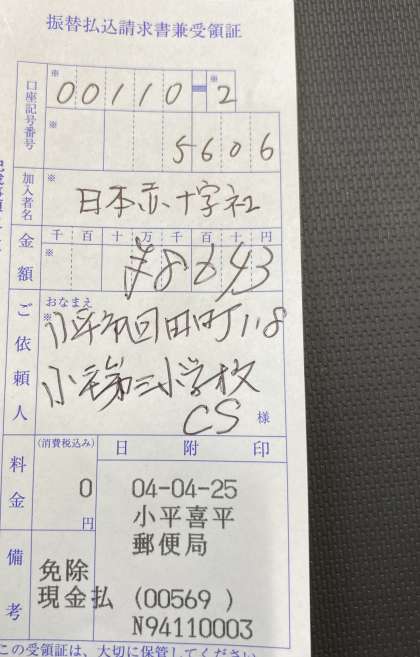 振替払込請求書兼受領証
口座記号番号
※ 00110 ※ 2
※ 5606
加入者名
※ 日本赤十字社
金額
千 百 十 万 千 百 十 円
※ ¥8643
ご依頼人
おなまえ
※ 小平市回田町118
小平第三小学校
CS 様
料金
(消費税込み)
0
円
日 附 印
04-04-25
小平喜平
郵便局
備考
免除
現金払 (00569 )
N94110003
この受領証は、大切に保管してください。